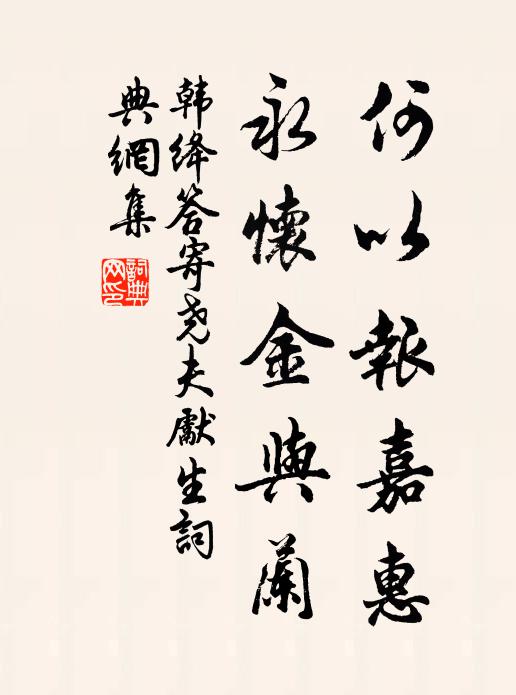 何以報嘉惠
永懷金與蘭
韩绛答寄尧夫獻生詞
典網集
詞典
网印